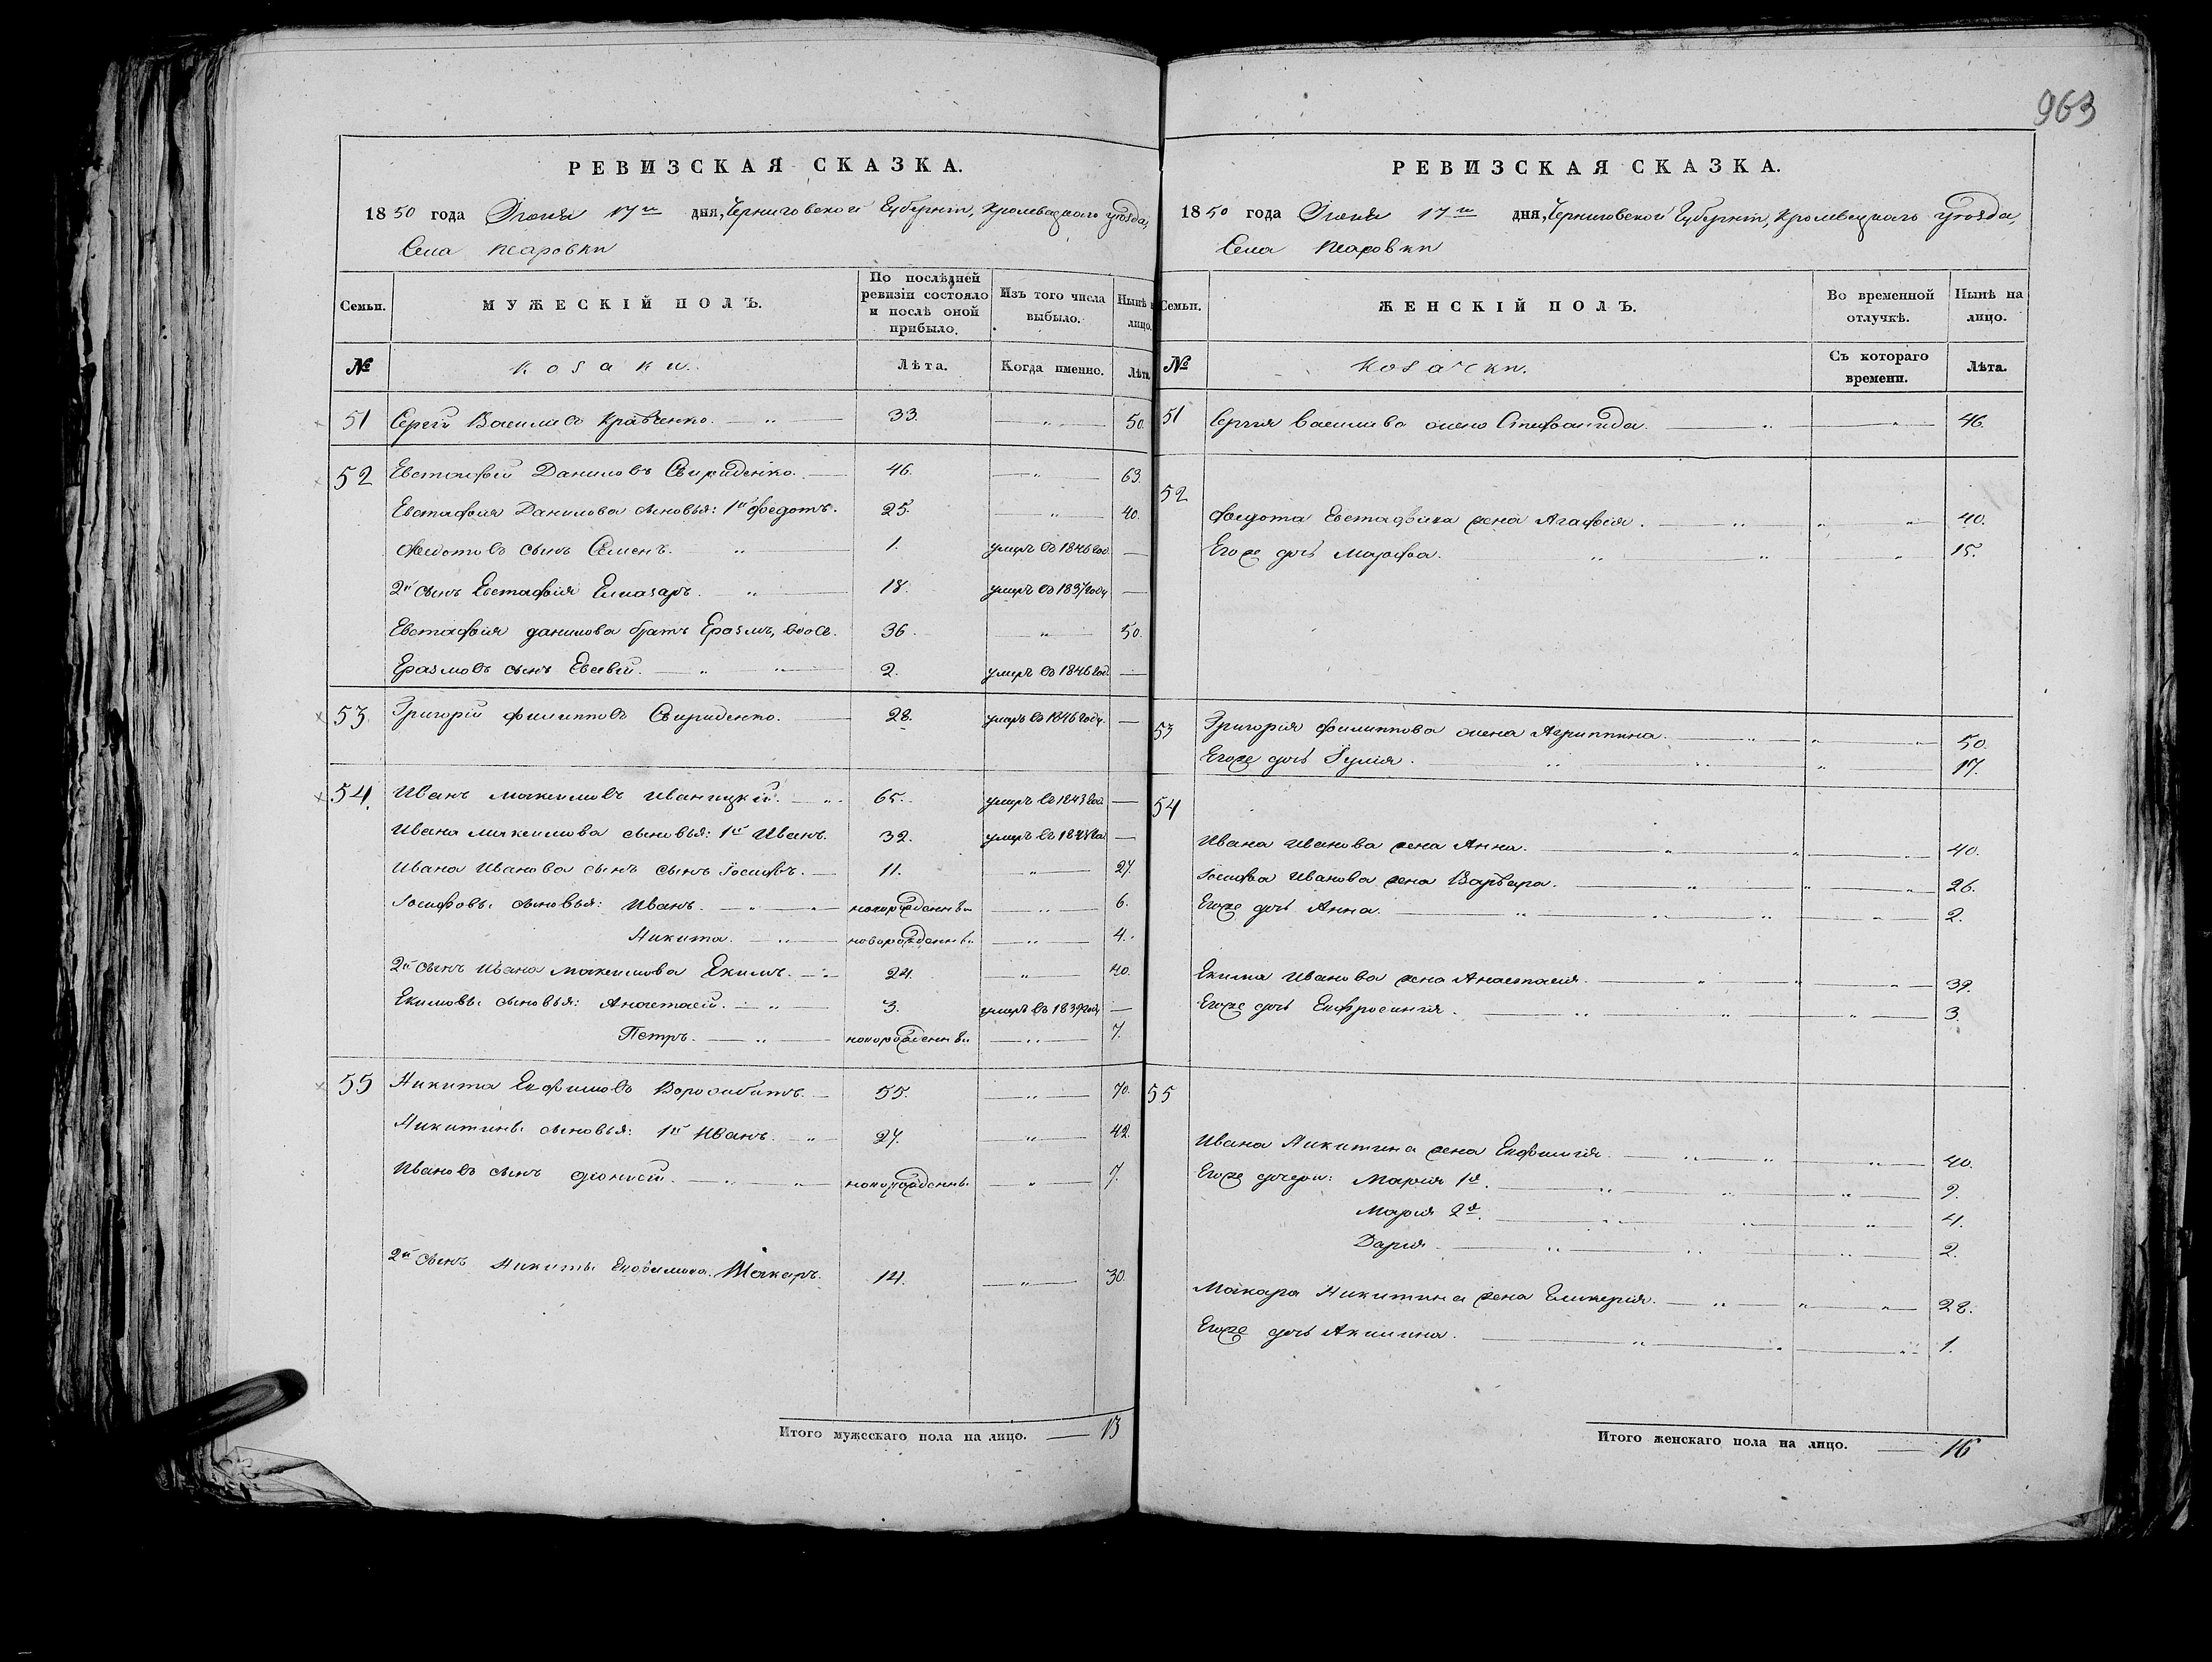 963
РЕВИЗСКАЯ СКАЗКА.
1850 года Іюня 17го дня, Черниговской Губерніи, Кролевецкаго уѣзда,
Села
Семьи.
МУЖЕСКІЙ ПОЛЪ.
По послѣдней ревизіи состояло и послѣ оной прибыло.
Изъ того числа выбыло.
Нынѣ на лицо.
№
козаки.
Лѣта.
Когда именно.
Лѣта
51 Сергій Васильевъ Кравченко. 33. 50.
52 Евстафій Даниловъ Свириденко. 46. 63.
Евстафія Данилова сыновья: 1й Федотъ. 25. 40.
Федотовъ сынъ Семенъ. 1. умеръ въ 1846 год.
2й сынъ Евстафія Елиазаръ. 18. умеръ въ 1837 году
Евстафія Данилова братъ Еразмъ, 36. 50.
Еразмовъ сынъ Евсевій. 2. умеръ въ 1846 год.
53. Григорій Филипповъ Свириденко. 28. умеръ въ 1846 году.
54. Иванъ Максимовъ Иваницкій. 65. умеръ въ 1843 год.
Ивана Максимова сыновья: 1й Иванъ. 32. умеръ въ
Ивана Иванова сынъ сынъ Іосифъ. 11. 27.
Іосифовы сыновья: Иванъ. новорожденны 6.
Никита. новорожденны 4.
2й сынъ Ивана Максимова Екимъ. 24. 40.
Екимовы сыновья: Анастасій. 3. умеръ въ 1839 году
Петръ. новорожденны 7.
55 Никита Евфимовъ Ворожбитъ. 55. 70.
Никитины сыновья: 1й Иванъ. 27. 42.
Ивановъ сынъ Діонисій. новорожденны 7.
2й сынъ Никиты Евфимова Макаръ. 14. 30.
Итого мужескаго пола на лицо. 13
РЕВИЗСКАЯ СКАЗКА.
1850 года Іюня 17го дня, Черниговской Губерніи, Кролевецкаго уѣзда,
Села
Семьи.
ЖЕНСКІЙ ПОЛЪ.
Во временной отлучкѣ.
Нынѣ на лицо.
№
козачки.
Съ котораго времени.
Лѣта.
51 Сергія Васильева жена Стефанида. 46.
52
Федота Евстафіева жена Агафія. 40.
Егоже дочь Марфа. 15.
53 Григорія Филиппова жена Агриппина. 50.
Егоже дочь Іулія. 17.
54
Ивана Иванова жена Анна. 40.
Іосифа Иванова жена Варвара. 26.
Егоже дочь Анна. 2.
Екима Иванова жена Анастасія. 39.
Егоже дочь Евфросинія. 3.
55
Ивана Никитина жена Евфимія. 40.
Егоже дочери: Марія 1я. 9.
Марія 2я. 4.
Дарія. 2.
Макара Никитина жена Гликерія. 28.
Егоже дочь Акилина. 1.
Итого женскаго пола на лицо. 16